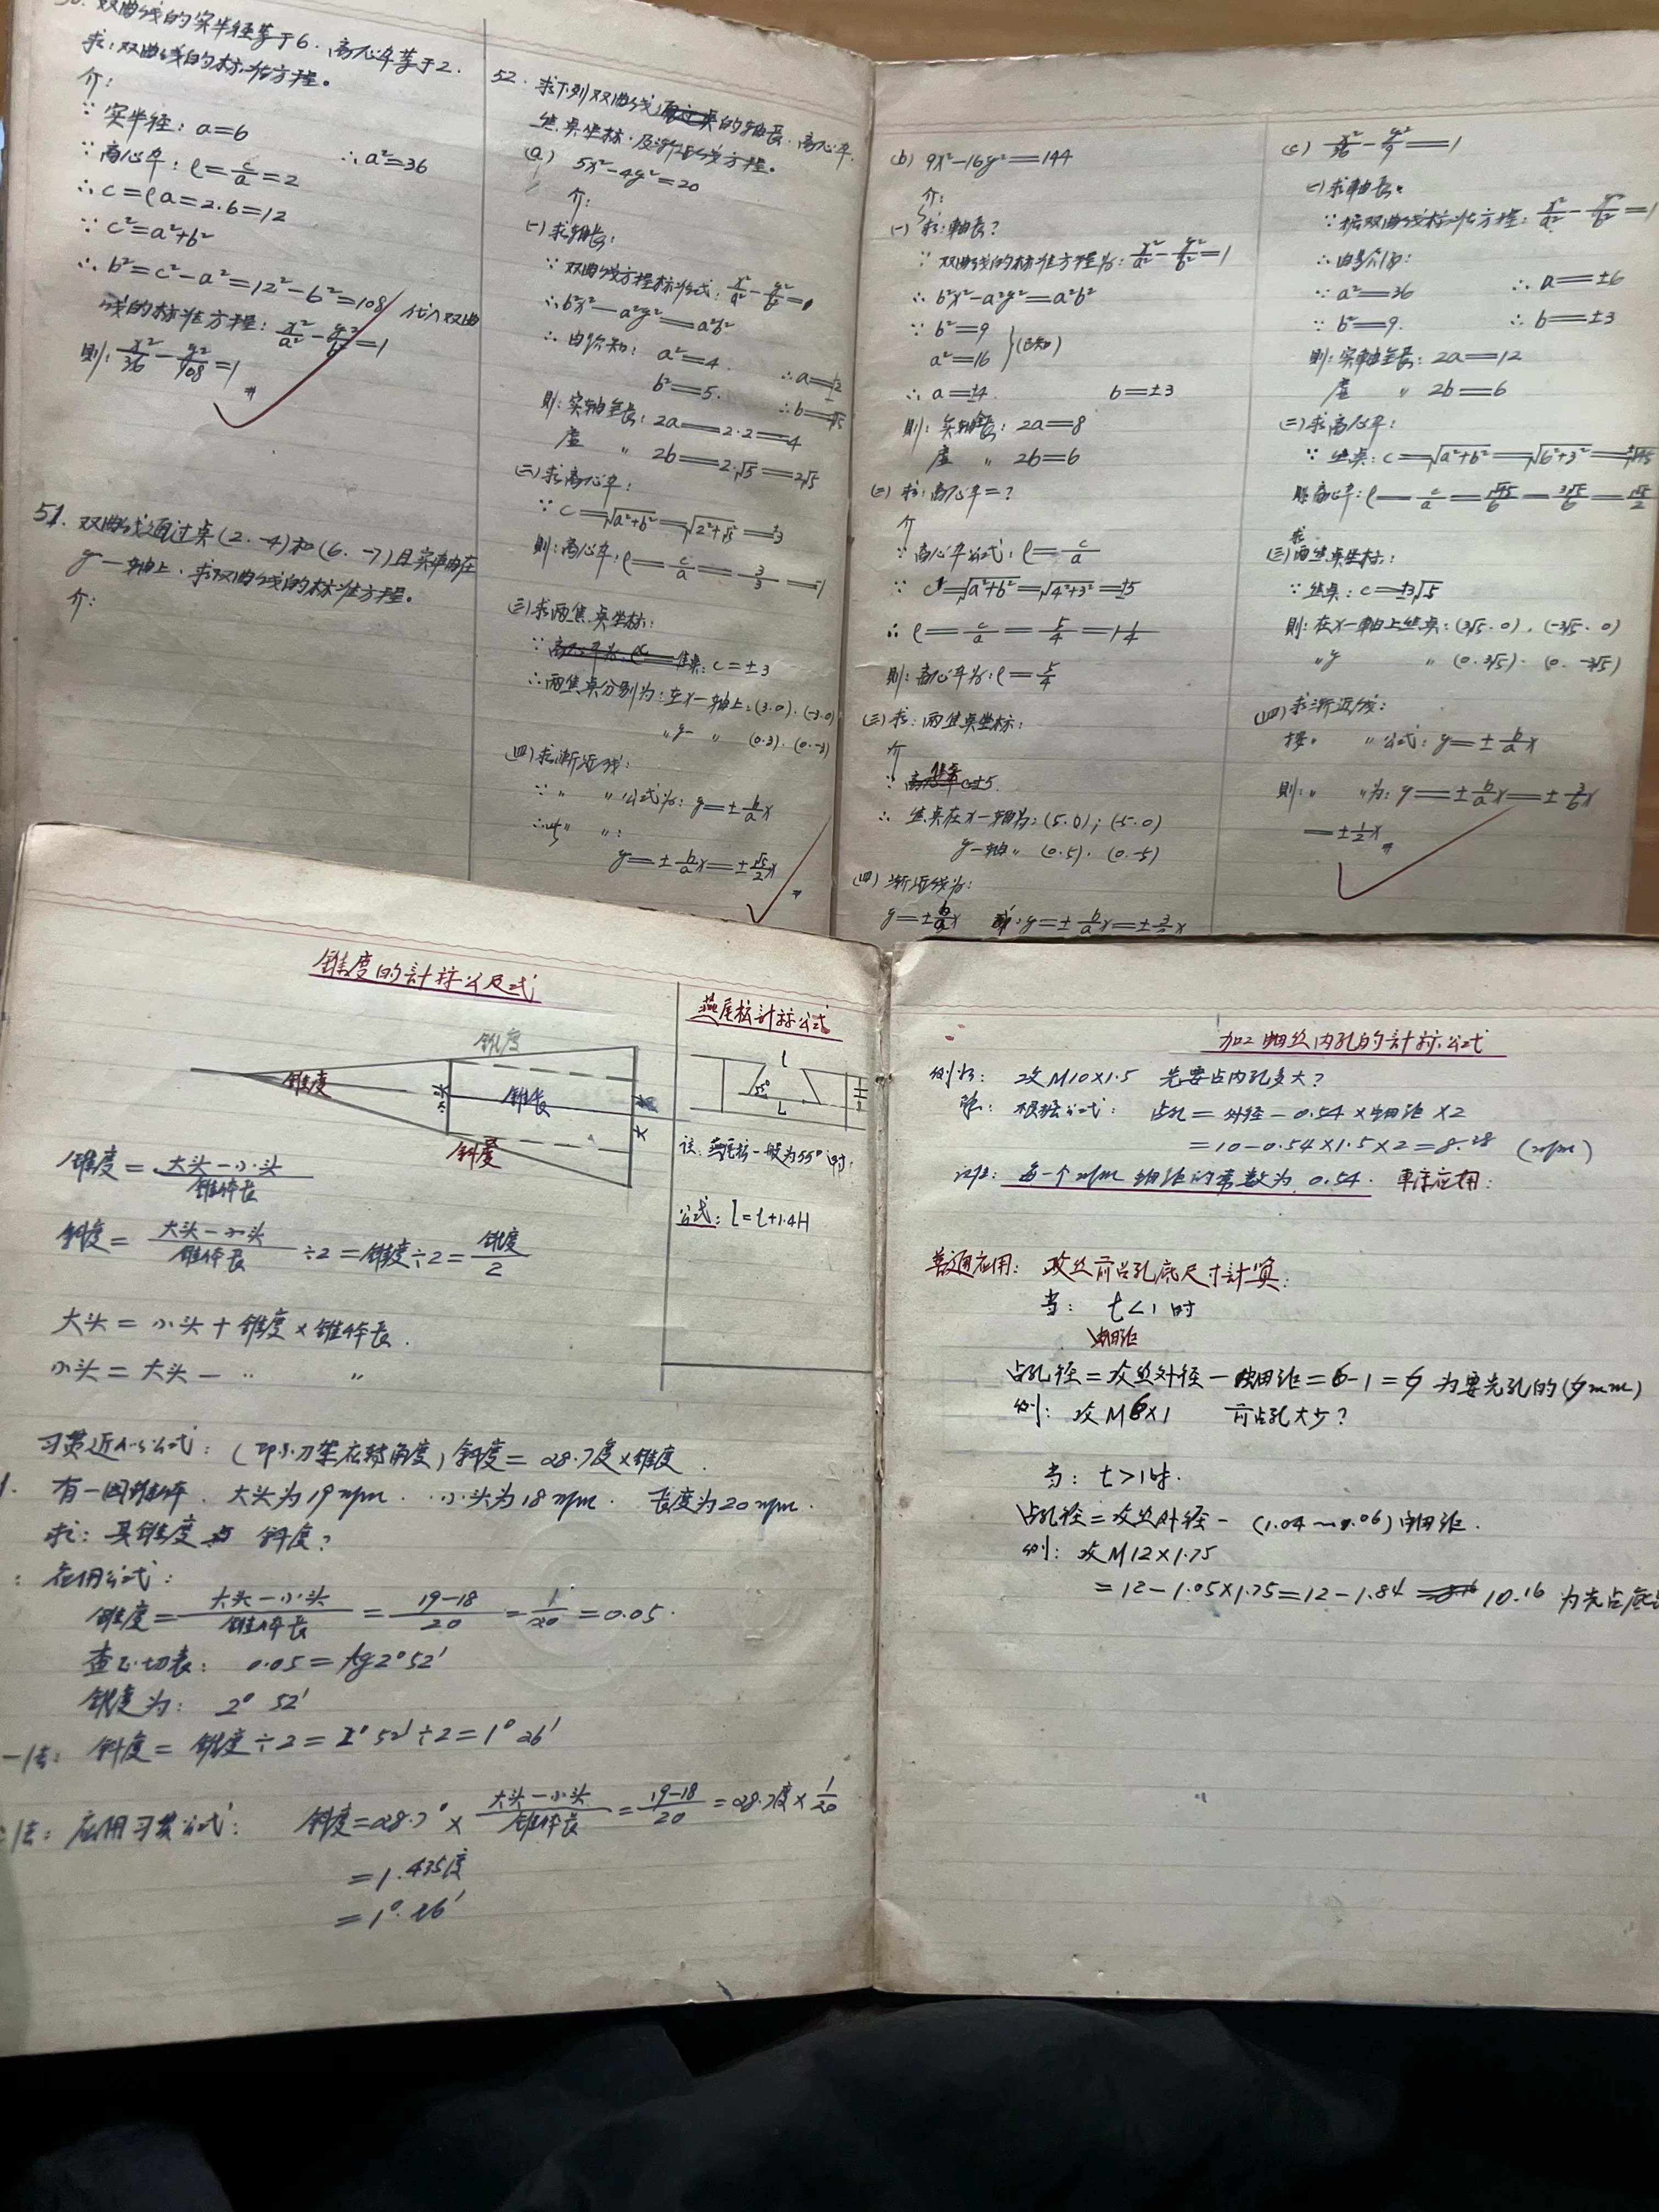 双曲线的实半径等于6.离心率等于2.
求:双曲线的标准方程。
介:
∵实半径:a=6 ∴a²=36
∵离心率:e=c/a=2
∴c=ea=2·6=12
∵c²=a²+b²
∴b²=c²-a²=12²-6²=108 代入双曲
线的标准方程:x²/a²-y²/b²=1
则:x²/36-y²/108=1
51.双曲线通过点(2.-4)和(6.-7)且实轴在
y-轴上.求双曲线的标准方程。
介:
52.求下列双曲线的轴長.离心率.
焦点坐标.及渐近线方程。
(a) 5x²-4y²=20
介:
(一)求轴長:
∵双曲线方程标准式:x²/a²-y²/b²=
∴b²x²-a²y²=a²b²
∴由 知: a²=4. ∴a=±2
b²=5. ∴b=±√5
則:实轴全長:2a=2·2=4
虚 〃 2b=2·√5=2√5
(二)求离心率:
∵c=√a²+b²=√2²+√5²=±3
則:离心率:e=c/a=3/3=1
(三)求两焦点坐标:
∵ 焦点:c=±3
∴两焦点分别为:在x-轴上:(3.0).(-3.0)
〃y- 〃 (0.3).(0.-3)
(四)求渐近线:
∵〃 〃公式为:y=±b/a x
∴此〃 〃:
y=±b/a x=±√5/2 x
(b) 9x²-16y²=144
介:
(一)求:軸長?
∵双曲线的标准方程为:x²/a²-y²/b²=1
∴b²x²-a²y²=a²b²
∵b²=9
a²=16 }(已知)
∴a=±4. b=±3
則:实轴全長:2a=8
虚 〃 2b=6
(二)求:离心率=?
介
∵离心率公式:e=c/a
∵c=√a²+b²=√4²+3²=±5
∴e=c/a=5/4=1 1/4
則:离心率为:e=5/4
(三)求:两焦点坐标:
介
∵焦点c±5.
∴焦点在x-轴为:(5.0);(-5.0)
y-轴〃 (0.5).(0.-5)
(四)渐近线为:
y=±b/a x 即:y=±b/a x=±3/ x
(c) x²/36-y²/9=1
(一)求軸長。
∵据双曲线标准方程:x²/a²-y²/b²=1
∴由
∵a²=36 ∴a=±6
∵b²=9. ∴b=±3
則:实軸全長:2a=12
虚 〃 2b=6
(二)求离心率:
∵焦点:c=√a²+b²=√6²+3²=±√45
离心率:e=c/a=√45/6=3√5/6=√5/2
(三)求两焦点坐标:
∵焦点:c=±3√5
則:在x-軸上焦点:(3√5.0).(-3√5.0)
〃y 〃 (0.3√5).(0.-3√5)
(四)求渐近线:
按. 〃公式:y=±b/a x
則:〃 〃为:y=±b/a x=±3/6 x
=±1/2 x
锥度的計标公及式
锥度
锥度
小头
锥长
大头
斜度
锥度=大头-小头/锥体长
斜度=大头-小头/锥体长÷2=锥度÷2=锥度/2
大头=小头+锥度×锥体長.
小头=大头- 〃 〃
习贯近似公式:(即小刀架应转角度)斜度=28.7度×锥度.
有一圆锥体.大头为19mm.小头为18mm.长度为20mm.
求:其锥度与斜度?
应用公式:
锥度=大头-小头/锥体長=19-18/20=1/20=0.05.
查正切表: 0.05=tg2°52′
锥度为: 2°52′
一法: 斜度=锥度÷2=2°52′÷2=1°26′
法:应用习贯公式: 斜度=28.7°×大头-小头/锥体长=19-18/20=28.7度×1/20
=1.435度
=1°.26′
燕尾松計标公式
l
55°
L
H
注.燕尾松一般为55°时:
公式:l=t+1.4H
加工細丝内孔的計标公式
例如: 攻M10×1.5 先要占内孔多大?
解: 根据公式: 占孔=外径-0.54×蚏距×2
=10-0.54×1.5×2=8.38 (mm)
注: 每一个mm 蚏距的常数为0.54. 車床应用:
普通应用: 攻丝前占孔底尺寸計算:
当: t<1时
蚏距
占孔径=攻丝外径-蚏距=6-1=5 为要先孔的(5mm)
例: 攻M6×1 前占孔大少?
当: t>1时.
占孔径=攻丝外径-(1.04~1.06)蚏距.
例: 攻M12×1.75
=12-1.05×1.75=12-1.84= 10.16 为先占底